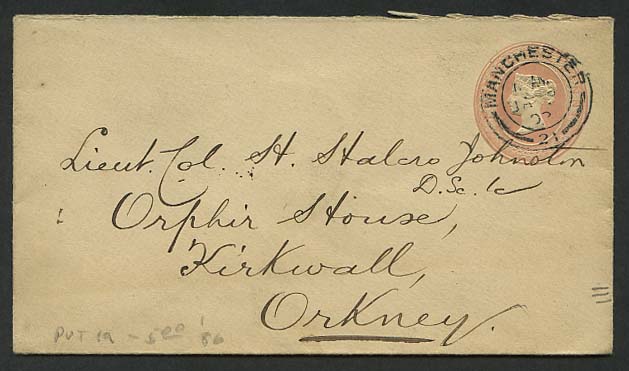 MANCHESTER
21
Lieut. Col. H. Halcro Johnston
D.Sc. &c
Orphir House,
Kirkwall,
Orkney.
PUT 19 - 500 '86